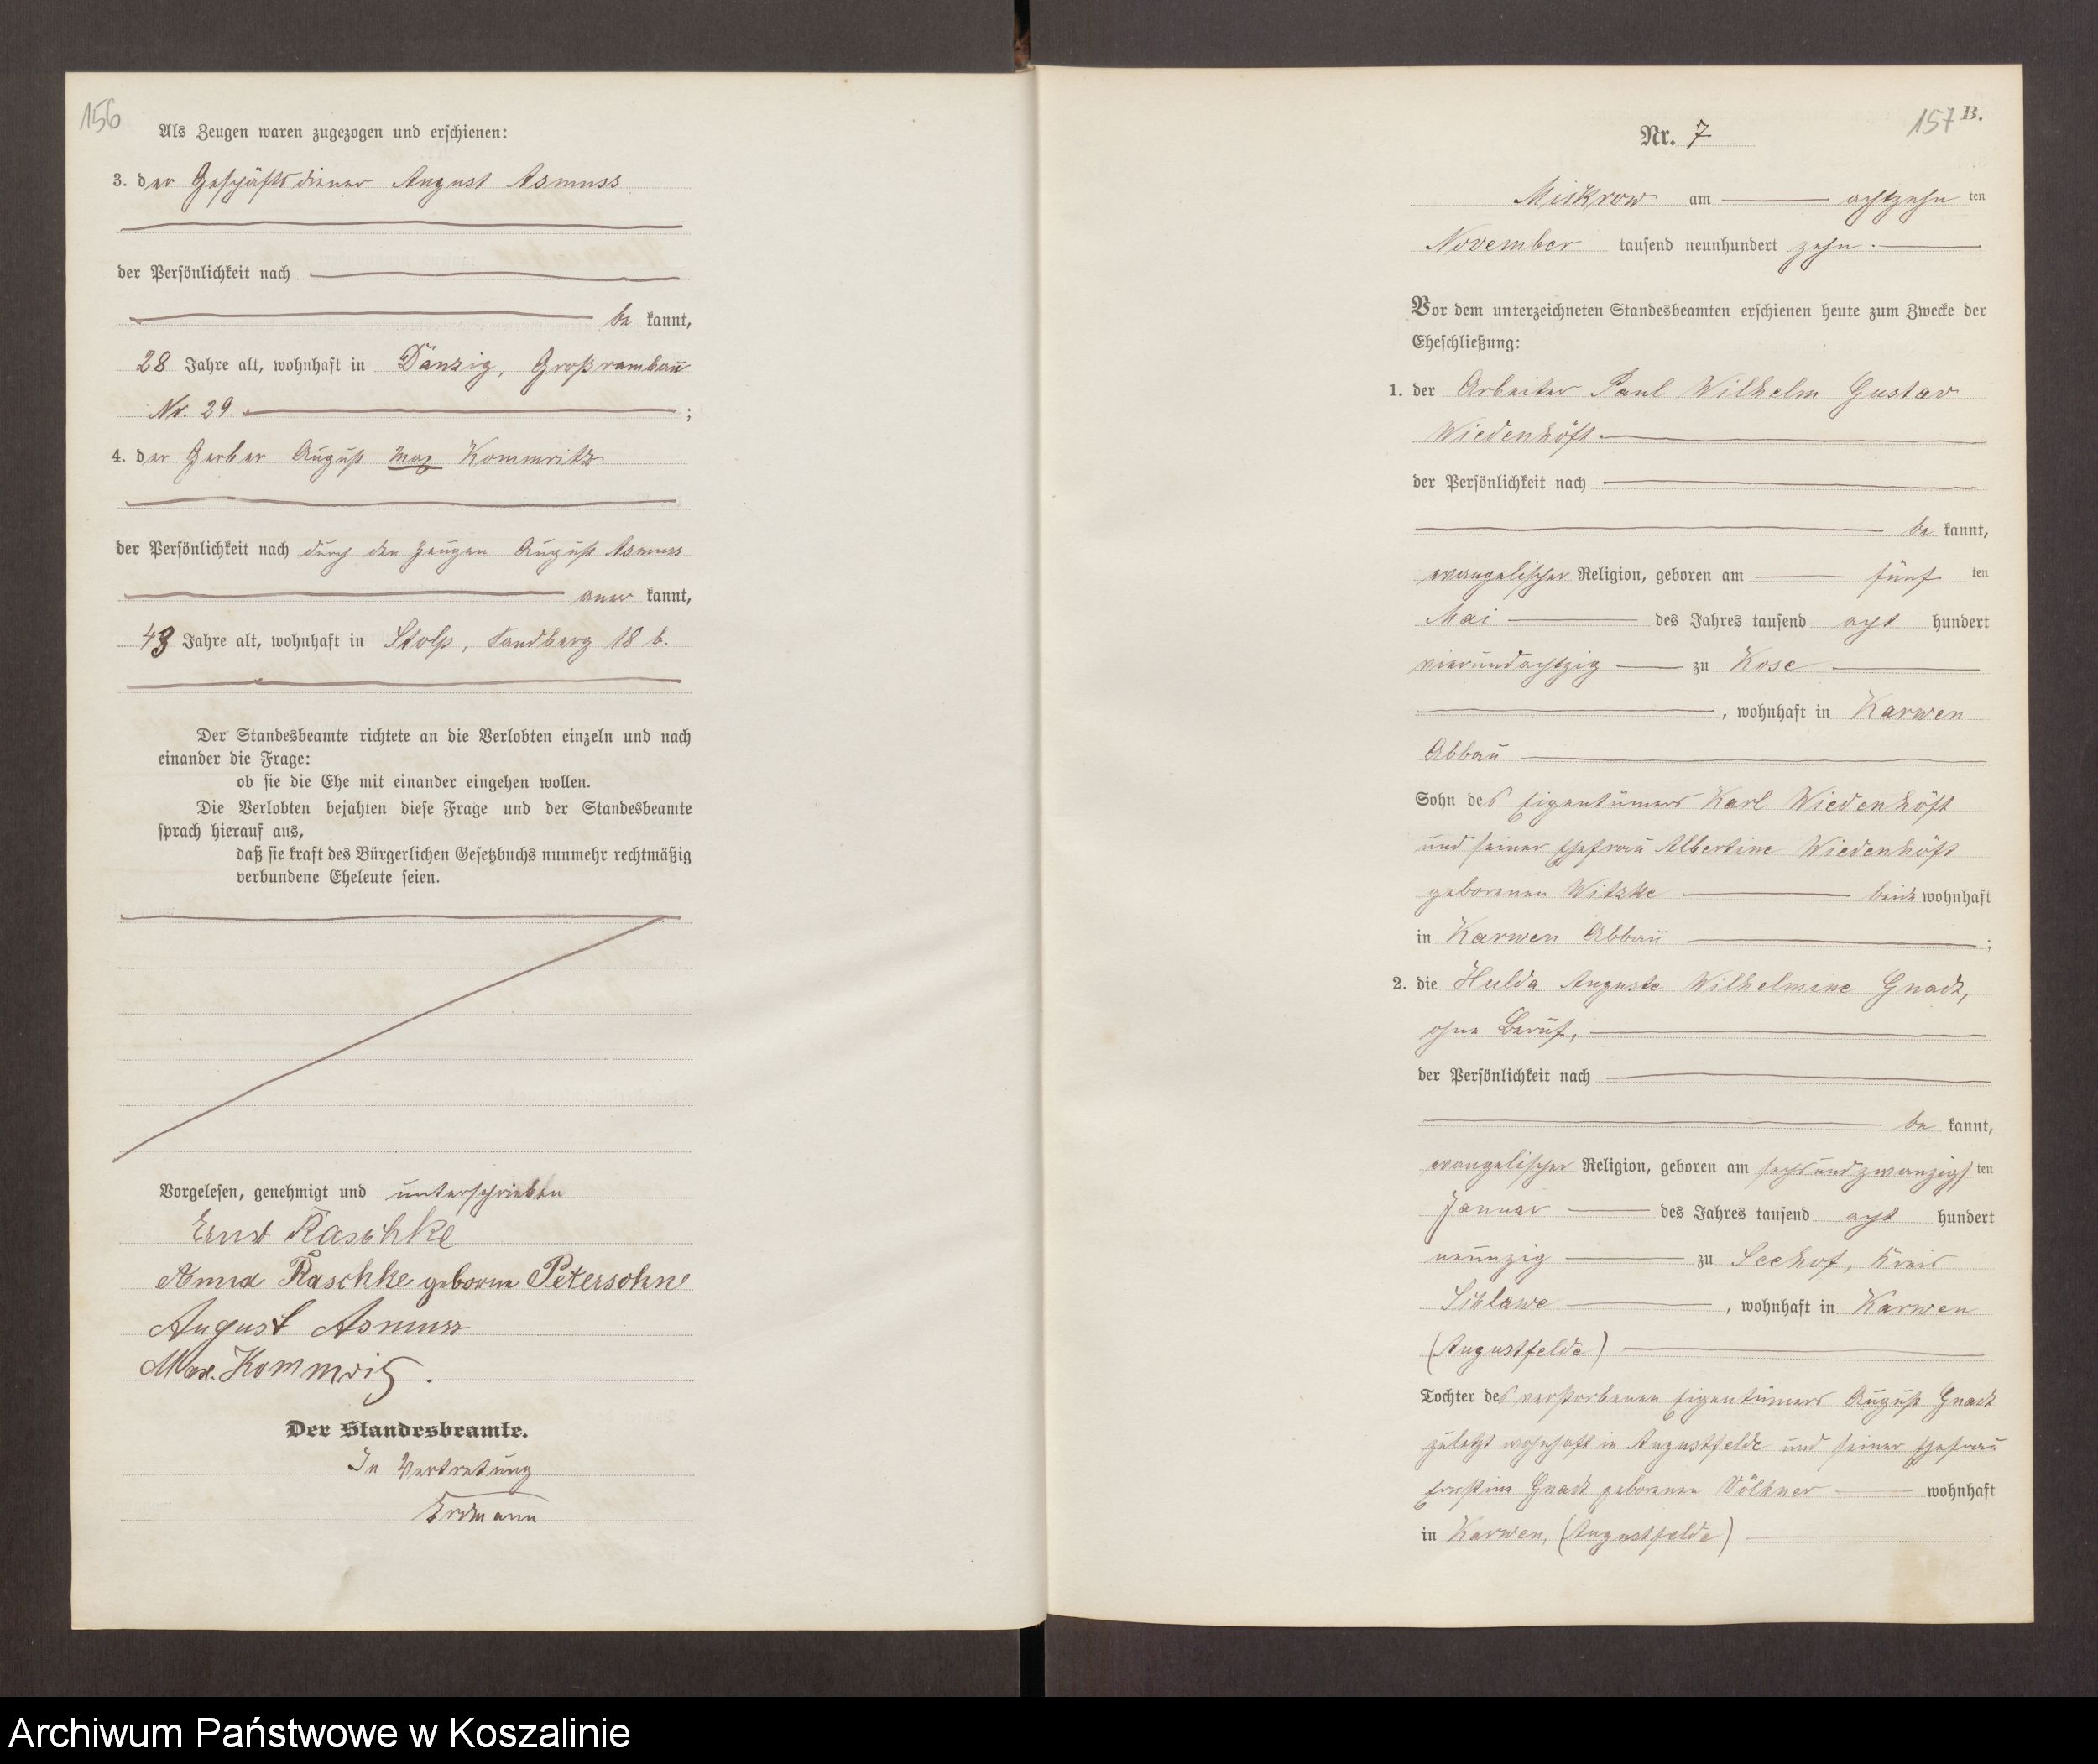 156
Als Zeugen waren zugezogen und erschienen:
3. der Geschäftsdiener August Asmuss
der Persönlichkeit nach
be kannt,
28 Jahre alt, wohnhaft in Danzig, Großrambau
Nr. 29. ;
4. der Gerber August Max Kommritz
der Persönlichkeit nach durch den Zeugen August Asmuss
aner kannt,
43 Jahre alt, wohnhaft in Stolp, Sandberg 18 b.
Der Standesbeamte richtete an die Verlobten einzeln und nach
einander die Frage:
ob sie die Ehe mit einander eingehen wollen.
Die Verlobten bejahten diese Frage und der Standesbeamte
sprach hierauf aus,
daß sie kraft des Bürgerlichen Gesetzbuchs nunmehr rechtmäßig
verbundene Eheleute seien.
Vorgelesen, genehmigt und unterschrieben
Ernst Raschke
Anna Raschke geborne Petersohn
August Asmuss
Max Kommritz.
Der Standesbeamte.
In Vertretung
Erdmann
157 B.
Nr. 7
Mickrow am achtzehn ten
November tausend neunhundert zehn.
Vor dem unterzeichneten Standesbeamten erschienen heute zum Zwecke der
Eheschließung:
1. der Arbeiter Paul Wilhelm Gustav
Wiedenhöft
der Persönlichkeit nach
be kannt,
evangelischer Religion, geboren am fünf ten
Mai des Jahres tausend acht hundert
vierundachtzig zu Kose
, wohnhaft in Karwen
Abbau
Sohn des Eigentümers Karl Wiedenhöft
und seiner Ehefrau Albertine Wiedenhöft
geborenen Witzke beide wohnhaft
in Karwen Abbau ;
2. die Hulda Auguste Wilhelmine Gnadt,
ohne Beruf,
der Persönlichkeit nach
be kannt,
evangelischer Religion, geboren am sechsundzwanzigs ten
Januar des Jahres tausend acht hundert
neunzig zu Seehof, Kreis
Schlawe , wohnhaft in Karwen
(Augustfelde)
Tochter des verstorbenen Eigentümers August Gnadt
zuletzt wohnhaft in Augustfelde und seiner Ehefrau
Ernstine Gnadt geborenen Völkner wohnhaft
in Karwen, (Augustfelde)
Archiwum Państwowe w Koszalinie